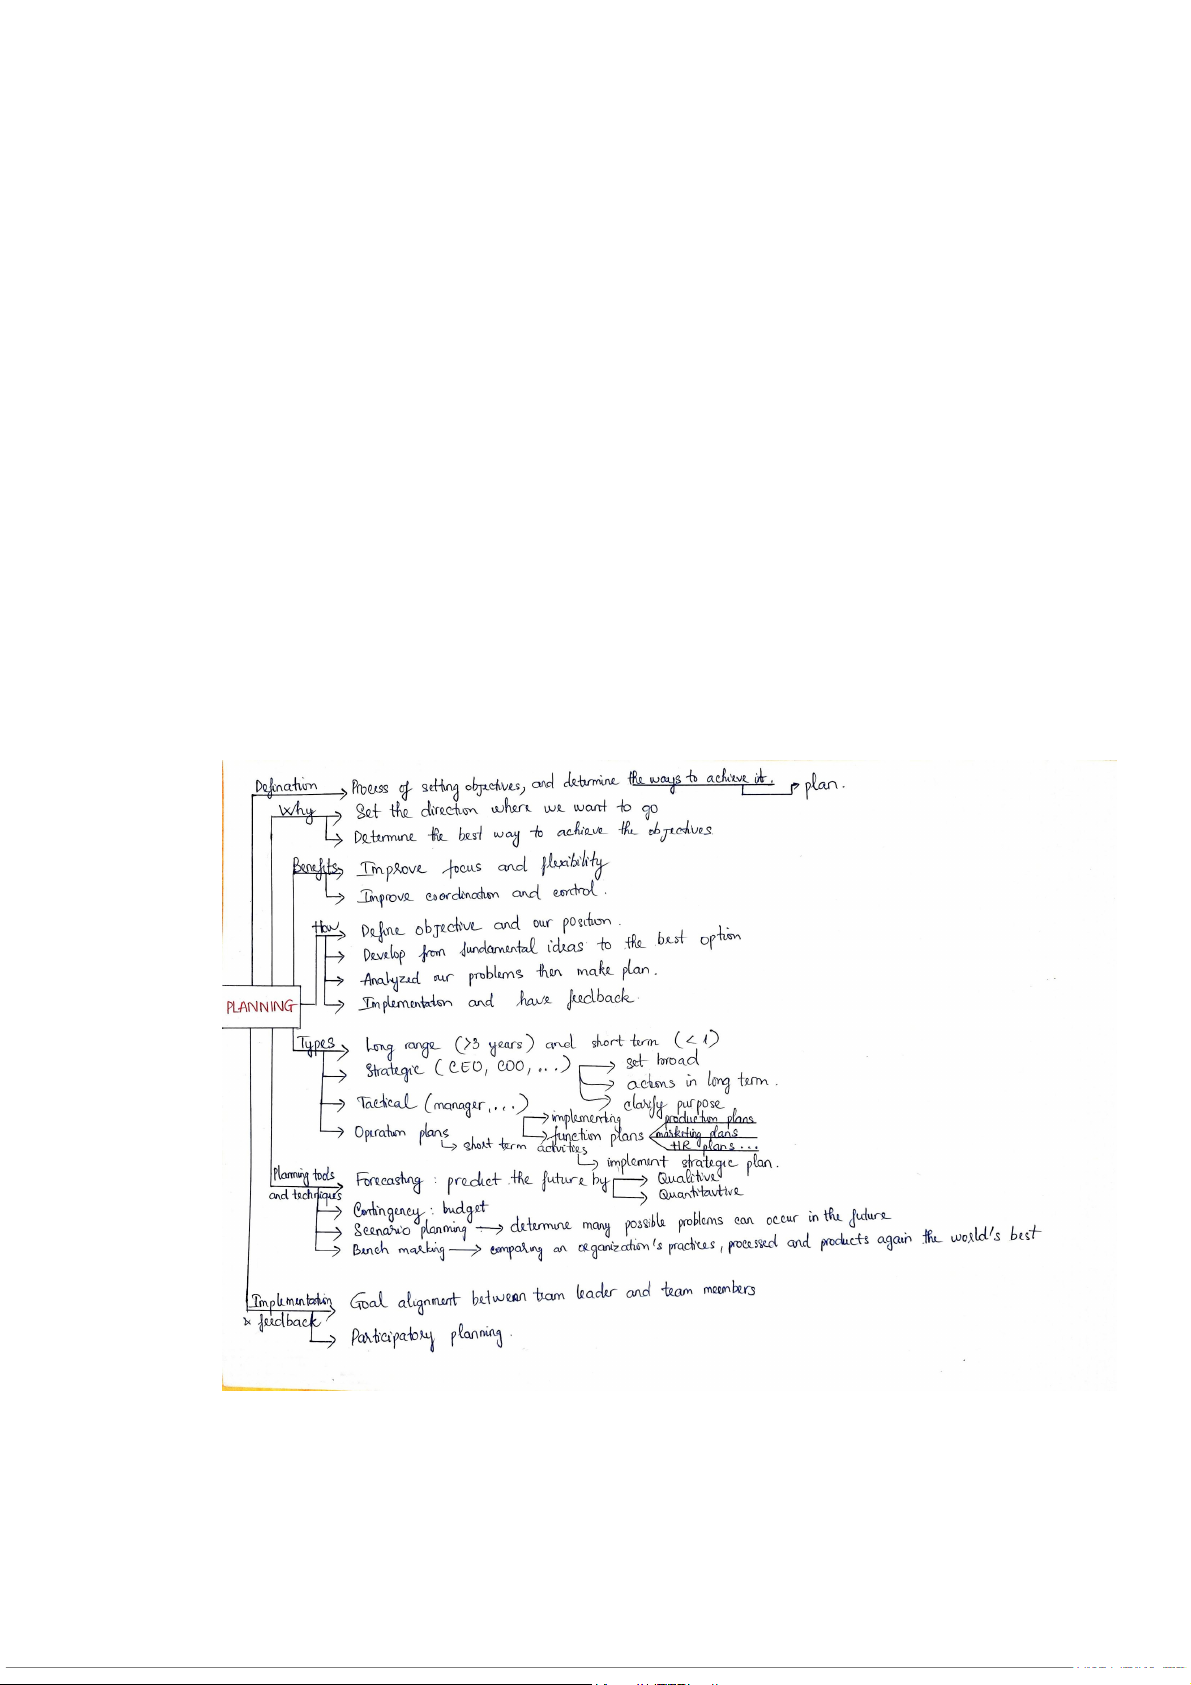 Defination → Process of setting objectives, and determine the ways to achieve it. → plan.
Why → Set the direction where we want to go
→ Determine the best way to achieve the objectives
Benefits → Improve focus and flexibility
→ Improve coordination and control.
How → Define objective and our position.
→ Develop from fundamental ideas to the best option
→ Analyzed our problems then make plan.
PLANNING
→ Implementation and have feedback.
Types → Long range (>3 years) and short term (< 1)
→ Strategic (CEO, COO, ...) → set broad
→ actions in long term.
→ clarify purpose
→ Tactical (manager, ...) → implementing
→ function plans
production plans
marketing plans
HR plans ...
→ Operation plans
↳ short term activities
↳ implement strategic plan.
Planning tools and techniques → Forecasting : predict the future by → Qualitive
→ Quantitautive
→ Contingency : budget
→ Scenario planning → determine many possible problems can occur in the future
→ Bench marking → comparing an organization's practices, processed and products again the world's best
Implementation → Goal alignment between team leader and team meembers
& feedback
→ Participatory planning.